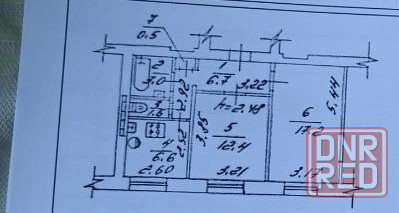 7
0.5
1
6.7
3.22
2
3.0
2.92
h=2.48
5.44
3
1.6
3.85
6
17.2
4
6.6
2.52
5
12.4
2.60
3.21
3.17
DNR
RED